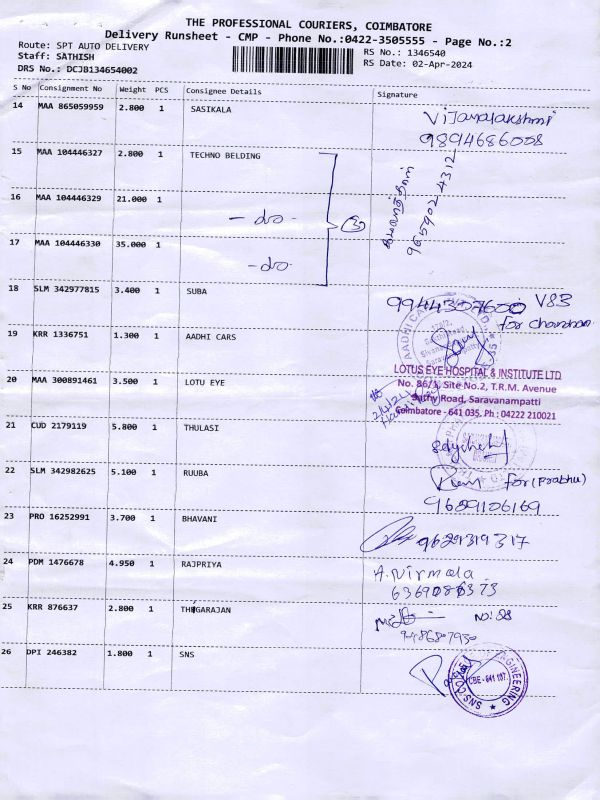 THE PROFESSIONAL COURIERS, COIMBATORE
Delivery Runsheet - CMP - Phone No.:0422-3505555 - Page No.:2
Route: SPT AUTO DELIVERY
RS No.: 1346540
Staff: SATHISH
RS Date: 02-Apr-2024
DRS No.: DCJB134654002
S No Consignment No Weight PCS Consignee Details Signature
14 MAA 865059959 2.800 1 SASIKALA
Vijayalakshmi
9894686008
15 MAA 104446327 2.800 1 TECHNO BELDING
16 MAA 104446329 21.000 1
- do - 3
965902 4312
17 MAA 104446330 35.000 1
- do -
18 SLM 342977815 3.400 1 SUBA
V83
for chandran
19 KRR 1336751 1.300 1 AADHI CARS
20 MAA 300891461 3.500 1 LOTU EYE
LOTUS EYE HOSPITAL & INSTITUTE LTD
No. 86/1, Site No.2, T.R.M. Avenue
Sathy Road, Saravanampatti
Coimbatore - 641 035. Ph : 04222 210021
21 CUD 2179119 5.800 1 THULASI
22 SLM 342982625 5.100 1 RUUBA
for (prabhu)
9689106169
23 PRO 16252991 3.700 1 BHAVANI
9629319317
24 PDM 1476678 4.950 1 RAJPRIYA
A. Nirmala
25 KRR 876637 2.800 1 THIGARAJAN
26 DPI 246382 1.800 1 SNS
CBE - 641 107.